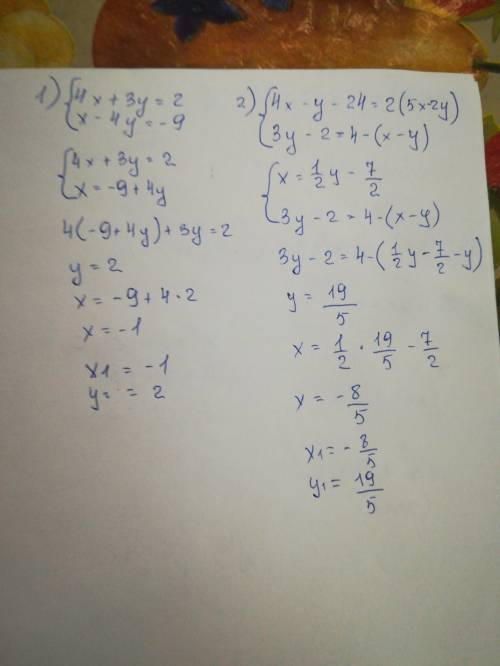 1) {4x + 3y = 2
x - 4y = -9
{4x + 3y = 2
x = -9 + 4y
4(-9 + 4y) + 3y = 2
y = 2
x = -9 + 4 · 2
x = -1
x1 = -1
y1 = 2
2) {4x - y - 24 = 2(5x-2y)
3y - 2 = 4 - (x - y)
{x = 1/2 y - 7/2
3y - 2 = 4 - (x - y)
3y - 2 = 4 - (1/2 y - 7/2 - y)
y = 19/5
x = 1/2 · 19/5 - 7/2
x = - 8/5
x1 = - 8/5
y1 = 19/5